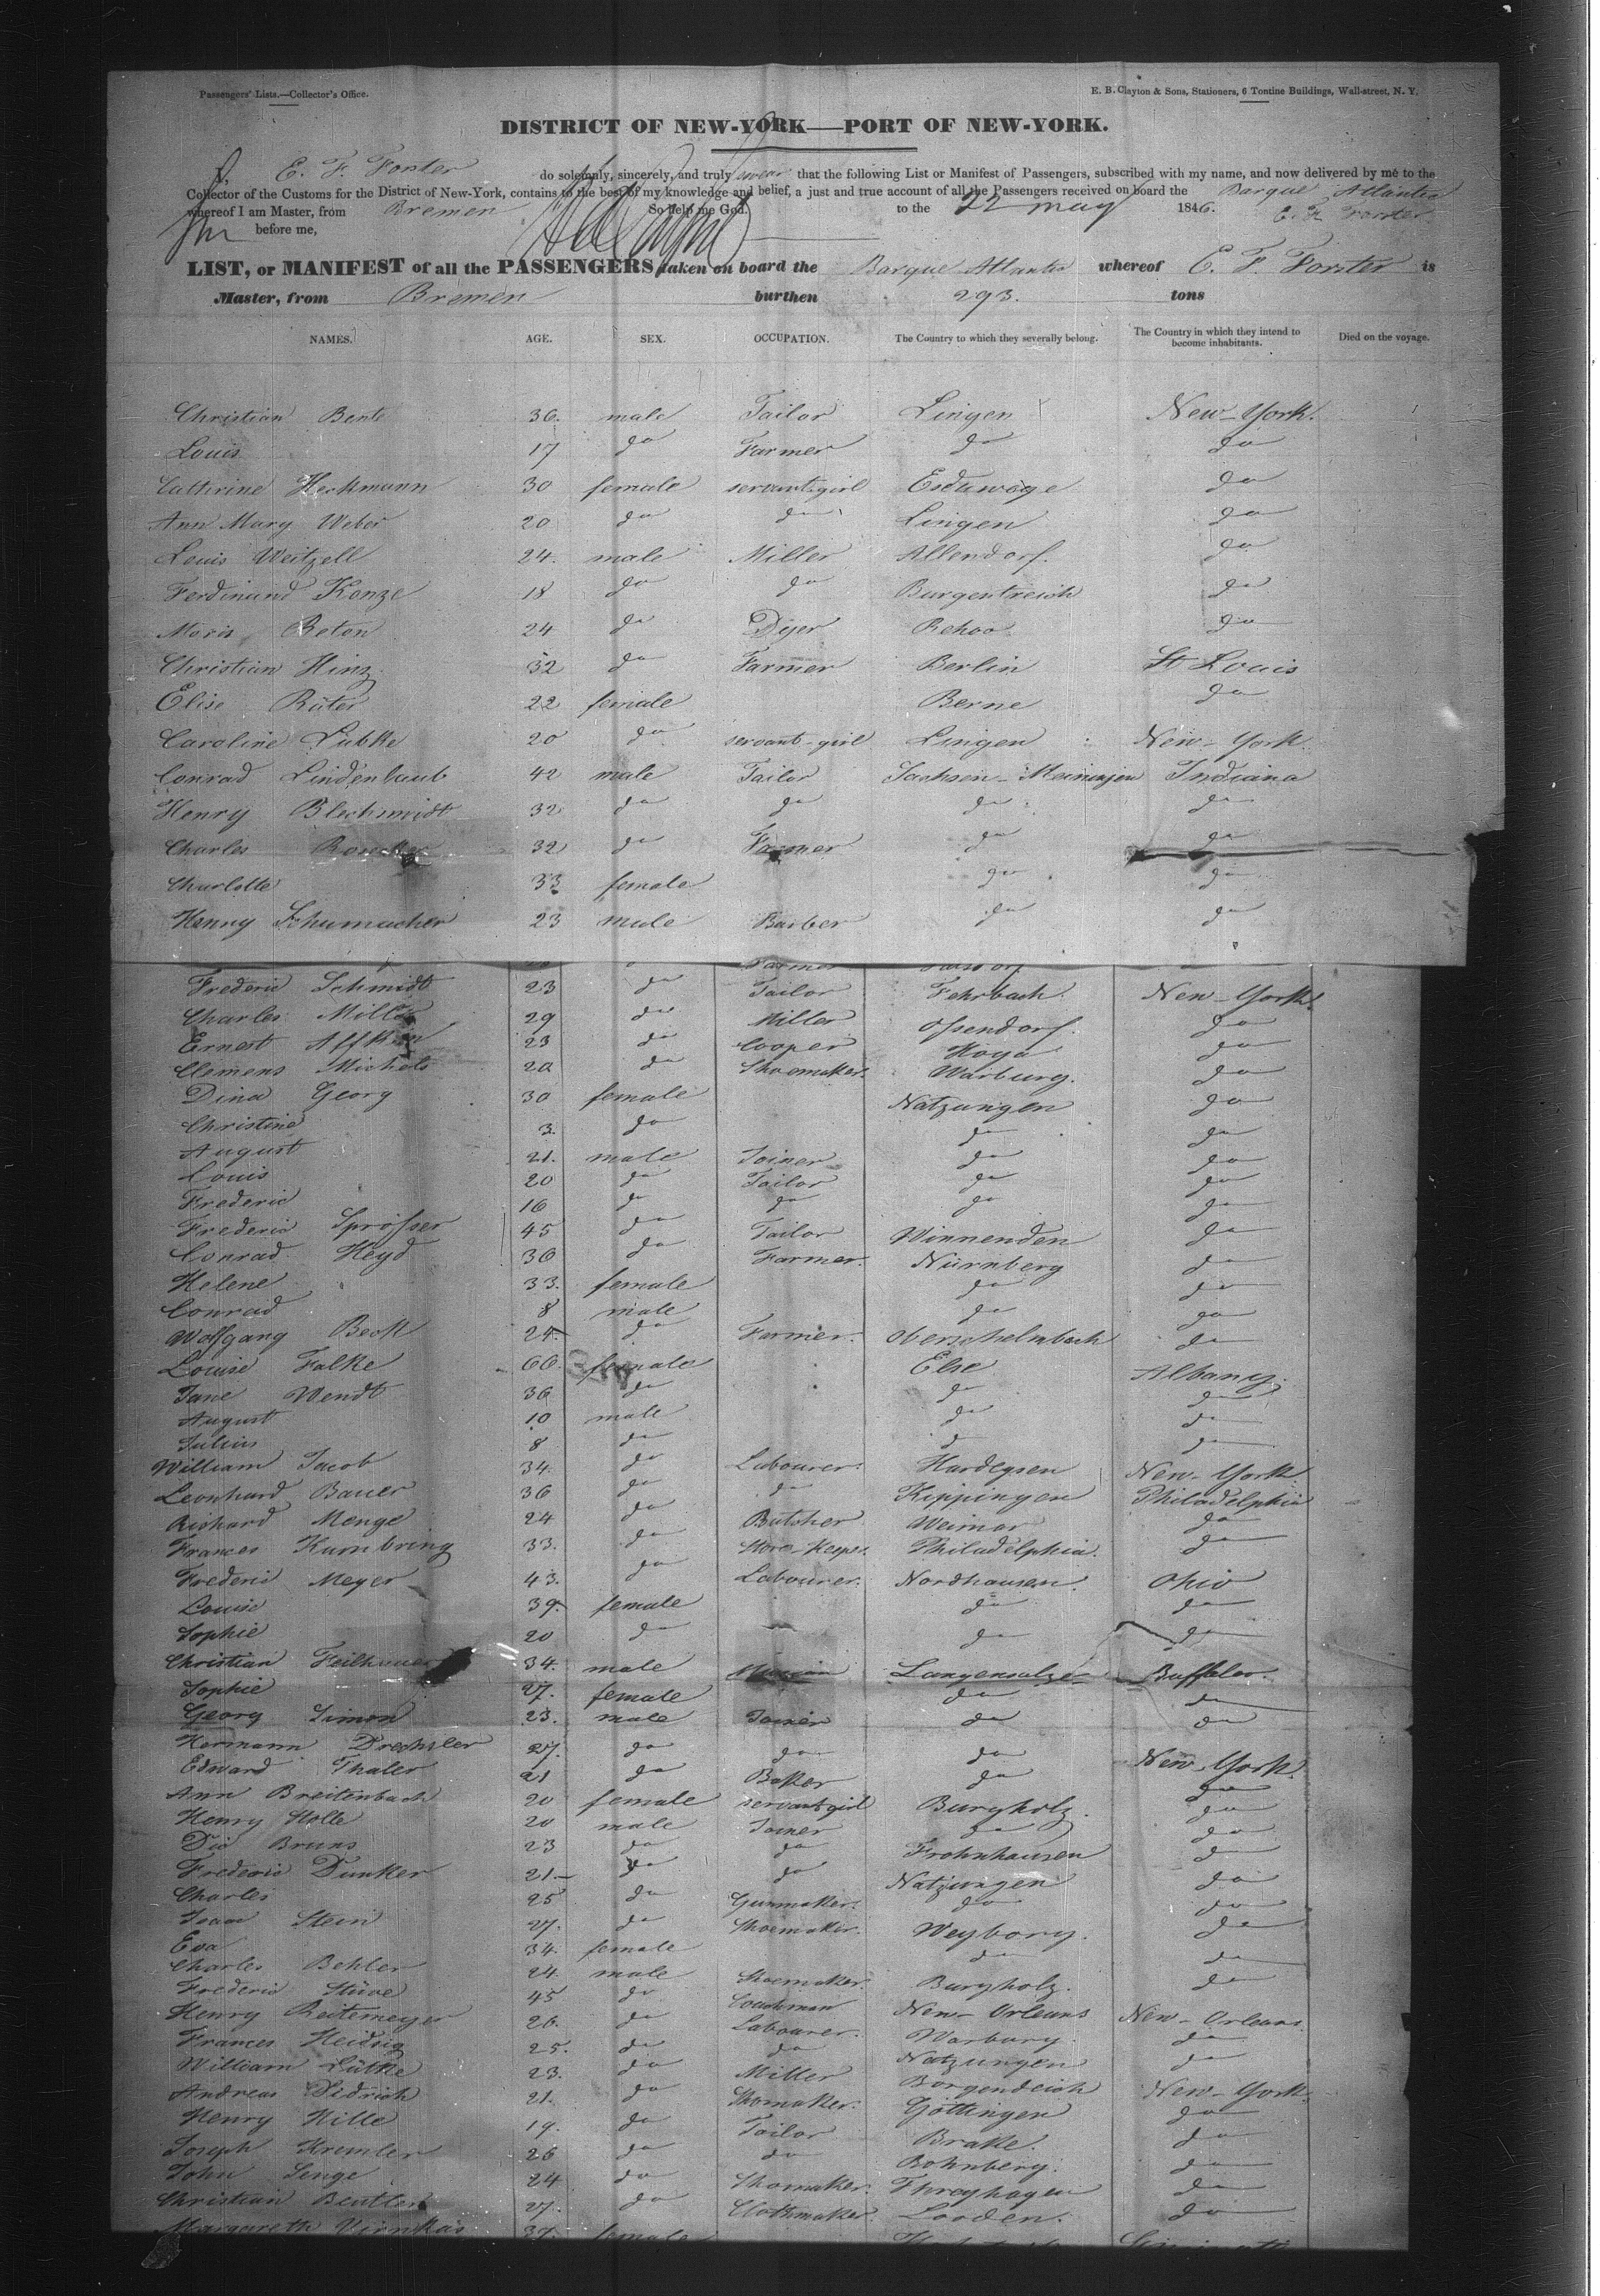 Passengers' Lists.—Collector's Office. E. B. Clayton & Sons, Stationers, 6 Tontine Buildings, Wall-street, N. Y.
DISTRICT OF NEW-YORK—PORT OF NEW-YORK.
I, E. F. Forster do solemnly, sincerely, and truly swear that the following List or Manifest of Passengers, subscribed with my name, and now delivered by me to the
Collector of the Customs for the District of New-York, contains to the best of my knowledge and belief, a just and true account of all the Passengers received on board the Barque Atlantic
whereof I am Master, from Bremen So help me God. to the 22 may 1846. E. F. Forster
before me,
LIST, or MANIFEST of all the PASSENGERS taken on board the Barque Atlantic whereof E. F. Forster is
Master, from Bremen burthen 293. tons
NAMES. AGE. SEX. OCCUPATION. The Country to which they severally belong. The Country in which they intend to become inhabitants. Died on the voyage.
Christian Bente 36. male Tailor Lingen New-York.
Louis 17 do Farmer do do
Cathrine Heckmann 30 female servant-girl do
Ann Mary Weber 20 do do Lingen do
Louis Weitzell 24. male Miller Allendorf. do
Ferdinand Konze 18 do do Burgentreich do
Moris Beton 24 do Dyer Rehoo do
Christian Hinz 32 do Farmer Berlin St Louis
Elise Rüter 22 female Berne do
Caroline Lübke 20 do servant-girl Lingen New-York.
Conrad Lindenlaub 42 male Tailor Sachsen-Meiningen Indiana
Henry Blechmidt 32 do do do do
Charles 32 do Farmer do do
Charlotte 33 female do do
Henry Schumacher 23 male Barber do do
Farmer
Frederic Schmidt 23 do Tailor Fehrbach. New-York.
Charles Miller 29 do Miller Ossendorf. do
Ernest 23 do Cooper Hoya do
Clemens Michels 20 do Shoemaker. Warburg. do
Dina Georg 30 female Natzungen do
Christine 3. do do do
August 21. male Joiner do do
Louis 20 do Tailor do do
Frederic 16 do do do do
Frederic Sprösser 45 do Tailor Winnenden do
Conrad Heyd 36 do Farmer. Nürnberg do
Helene 33. female do do
Conrad 8 male do do
Wolfgang Beck 24. do Farmer. Oberschelmbach do
Louise Falke 66. female Else Albany.
Jane Wendt 36 do do do
August 10 male do do
Julius 8 do do do
William Jacob 34. do Labourer. Hardegsen New-York.
Leonhard Bauer 36 do do Kippingen Philadelphia
Richard Menge 24 do Butcher Weimar do
Frances Kumbring 33. do Store-Keeper. Philadelphia. do
Frederic Meyer 43. do Labourer. Nordhausen. Ohio
Louise 39. female do do
Sophie 20 do do do
Christian Feilhauer 34. male Langensalza Buffaloo.
Sophie 27. female do do
Georg Simon 23. male Joiner do do
Hermann Drechsler 27. do do do New-York.
Edward Thaler 21 do Baker do do
Ann Breitenbach 20 female servant girl Burgholz. do
Henry Holle 20 male Joiner do do
Die Bruns 23 do do Frohnhausen do
Frederic Dunker 21— do do Natzungen do
Charles 25 do Gunmaker. do do
Isaac Stein 27. do Shoemaker. Weyborg. do
Eva 34. female do do
Charles Behler 24 male Shoemaker. Burgholz. do
Frederic Stüve 45 do Coachman New-Orleans New-Orleans.
Henry Reitemeyer 26. do Labourer. Warburg. do
Frances Heidsig 25. do do Natzungen do
William Lütke 23. do Miller Borgendeich New-York.
Andreas Diedrich 21. do Shomaker. Göttingen do
Henry Hille 19. do Tailor Brake. do
Joseph Kremler 26 do do Bohnberg. do
John Senge 24 do Shomaker. Threyhagen do
Christian Beutler 27. do Clothmaker. Loorden. do
Margareth 37. female